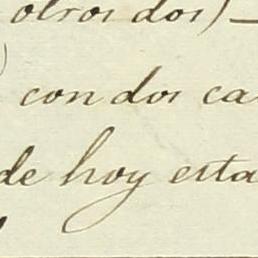 otros dos) —
) con dos ca
de hoy esta